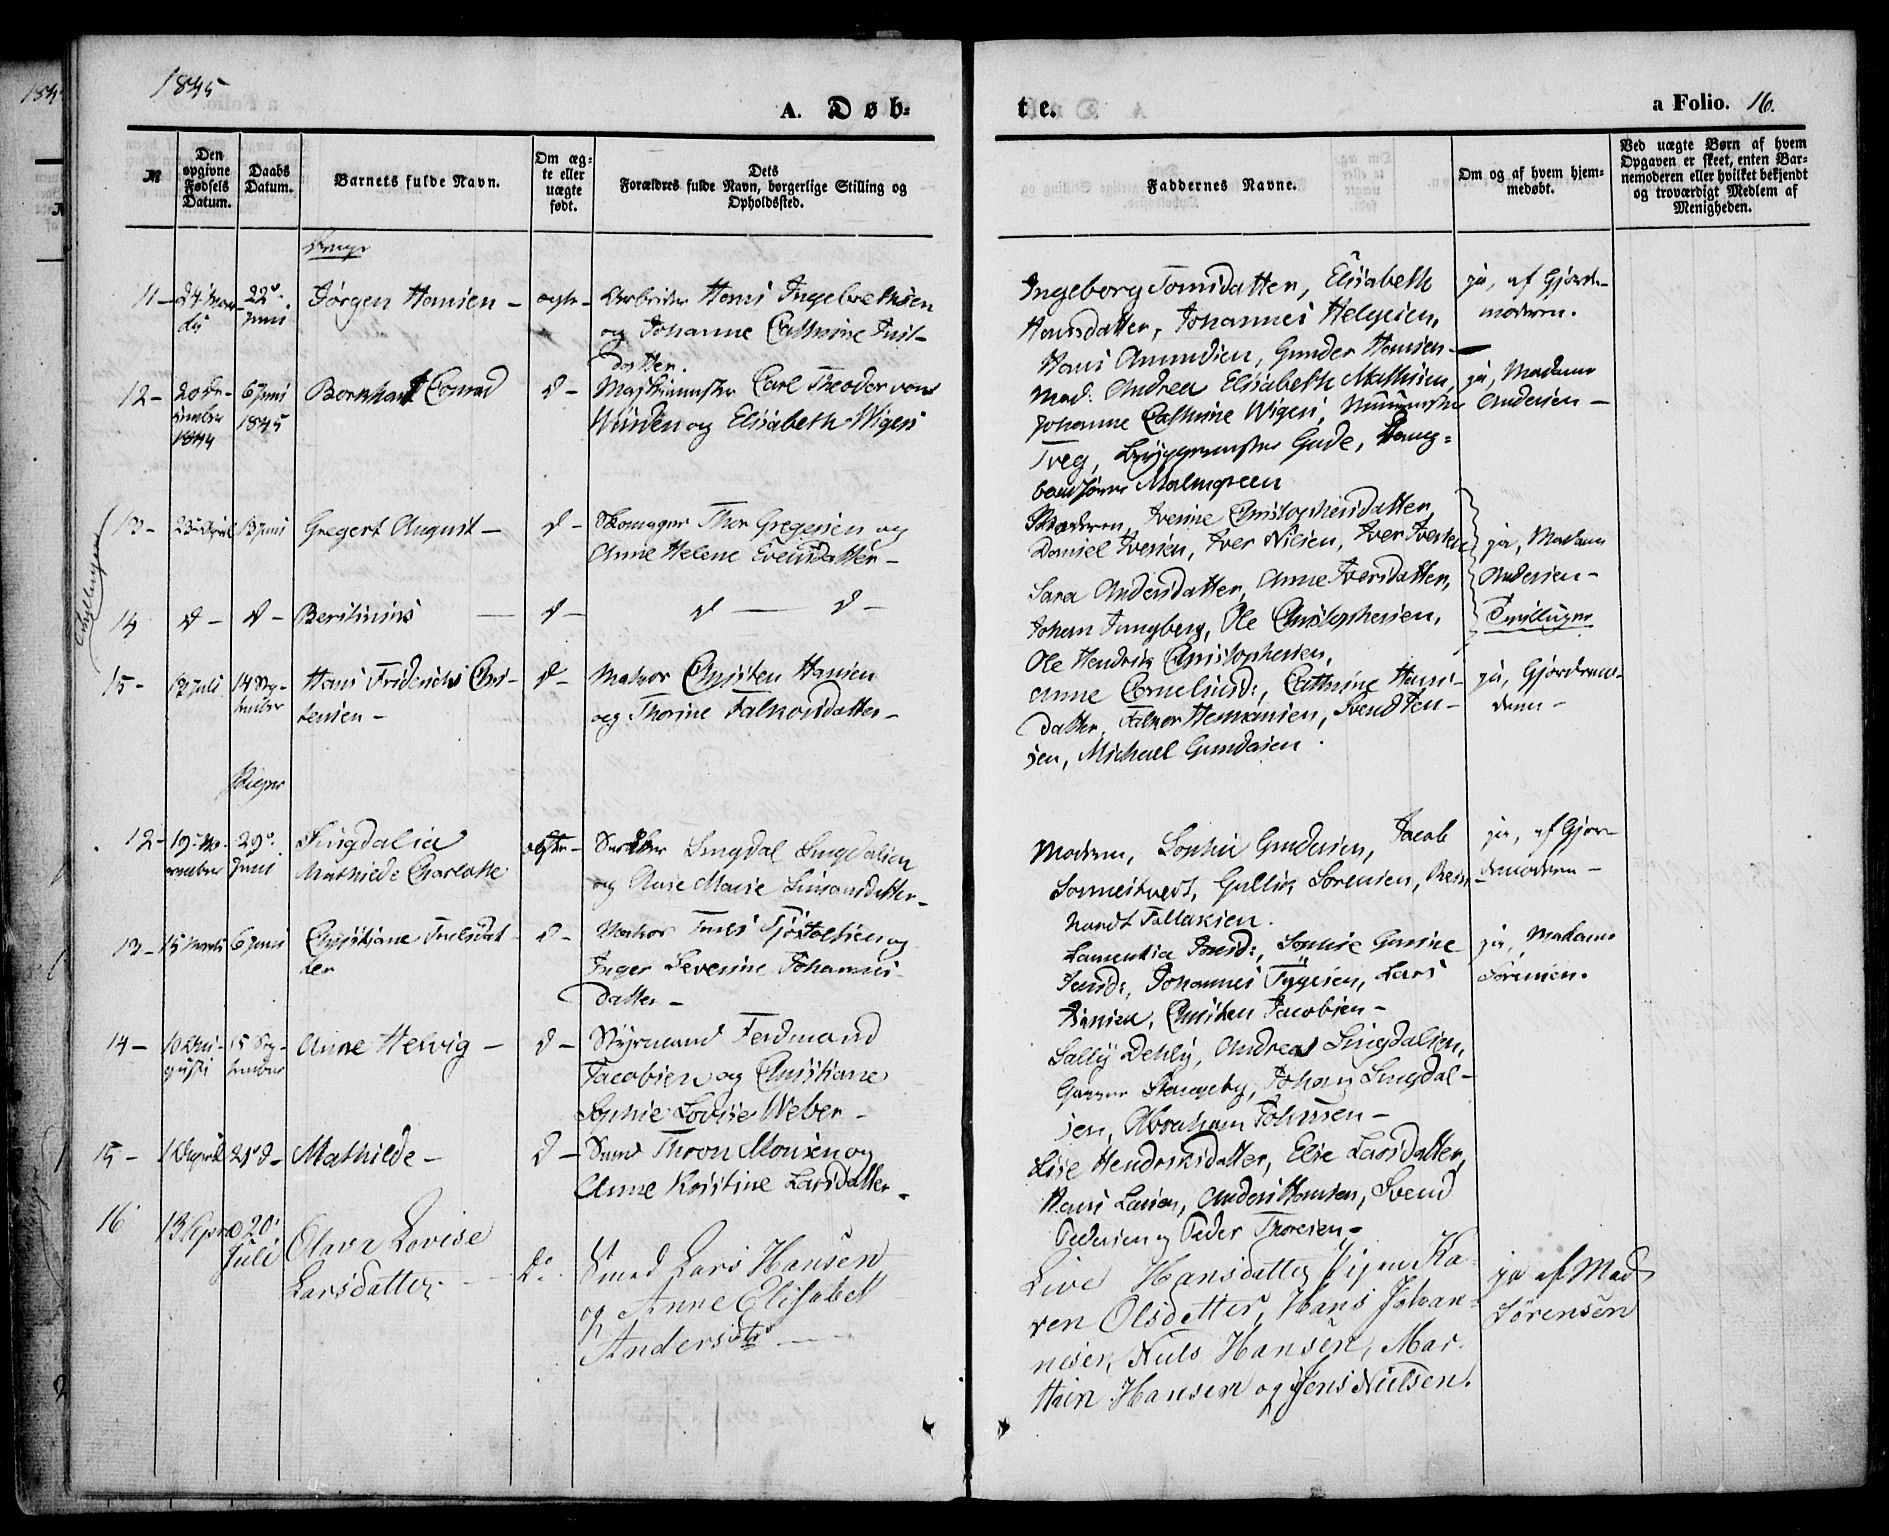 1845
A. Døb-
te.
a Folio. 16.
№
Den opgivne Fødsels Datum.
Daabs Datum.
Barnets fulde Navn.
Om ægte eller uægte født.
Dets
Forældres fulde Navn, borgerlige Stilling og
Opholdssted.
Faddernes Navne.
Om og af hvem hjem-
medøbt.
Ved uægte Børn af hvem
Opgaven er skeet, enten Bar-
nemoderen eller hvilket bekjendt
og troværdigt Medlem af
Menigheden.
Drenge
11 - 22de Juni Jørgen Hansen - ægte - Arbeider Hans Ingebrethsen
og Johanne Cathrine Juls-
datter.
Ingeborg Tomsdatter, Elisabeth
Hansdatter, Johannes Helgesen,
Hans Amundsen, Gunder Hansen -
ja, af Gjorde-
moderen.
12 - 20 December 1844 6 Juni 1845 Bernhart Conrad d - Carl Theodor von
Minden og Elisabeth Wigers
Mad. Andrea Elisabeth Mathisen,
Johanne Cathrine Wigers,
Treg, Byggemester Gude,
Malmgreen
ja, Madame
Andersen -
Tvillinger
13 - 23 April 13 Juni Gregert August - d - Skomager Thor Gregersen og
Anne Helene Evensdatter -
Moderen, Iverine Christophersdatter,
Daniel Iversen, Iver Nilsen, Iver Iversen
ja, Madame
Andersen -
Tvillinger
14 d - d - Berthinius - d - d - d -
Sara Andersdatter, Anne Iversdatter,
Johan Jungberg, Ole Christophersen,
Ole Hendrik Christophersen,
15 - 12 Juli 14 September Hans Friderich Chri-
stensen - d - Matros Christen Hansen
og Thorine Falkorsdatter -
Anne Corneliusd:, Cathrine Hans-
datter, Falkor Hermansen, Svend Jen-
sen, Michael Gundersen.
ja, Gjordemo-
deren -
Piger
12 - 19 November 29de Juni Singdalia
Mathilde Charlotte ægte - Snedker Singdal Singdalsen
og Anne Marie Simonsdatter -
Moderen, Sophie Gundersen, Jacob
Sonnestvedt, Gullik Sørensen, Rein-
hardt Tallaksen.
ja, af Gjor-
demoderen -
13 - 15 Marts 6 Juni Christiane Julsdat-
ter d - Matros Juls Tjøstolfsen og
Inger Severine Johannes-
datter -
Laurentia Jensd:, Sophie Gurine
Jensd:, Johannes Tygesen, Lars
Hansen, Christen Jacobsen -
ja, Madame
Sørensen.
14 - 10 August 15 September Anne Helvig - d - Styrmand Ferdinand
Jacobsen og Christiane
Sophie Lovise Weber -
Sally Dehly, Andreas Singdalsen,
Stangeby, Johan Singdal-
sen, Abraham Johnsen -
15 - 1 April 21 d - Mathilde - d - Smed Thron Monsen og
Anne Kristine Larsdatter -
Lise Hendriksdatter, Elie Larsdatter,
Hans Larsen, Anders Hansen, Svend
Pedersen og Peder Thoresen -
16 13 April 20 Juli Olava Lovise
Larsdatter - do. Smed Lars Hansen
og Anne Elisabeth
Andersdtr -
Live Hansdatter Pigen Ka-
ren Olsdatter, Hans Johan-
nesen, Niels Hansen, Mar-
thin Hansen og Jens Nielsen.
ja af Mad
Sørensen